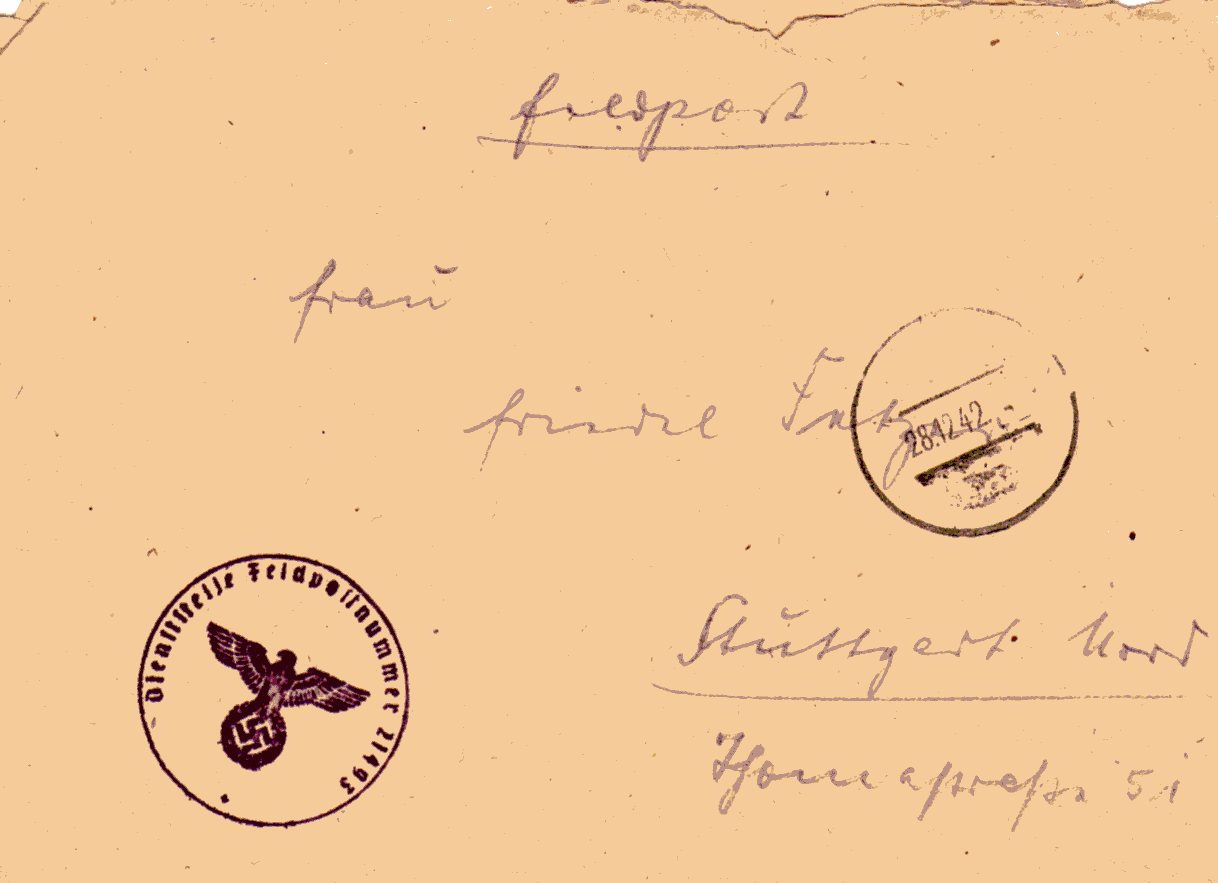 Feldpost
Frau
Friedel
28.12.42
Dienststelle Feldpostnummer 21493
Stuttgart Nord
Thomastraße 51